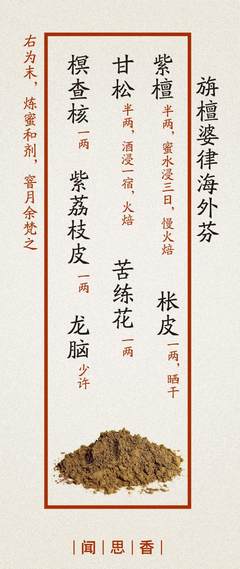 旃檀婆律海外芬
紫檀半两，蜜水浸三日，慢火焙 枨皮一两，晒干
甘松半两，酒浸一宿，火焙 苦练花一两
榠查核一两 紫荔枝皮一两 龙脑少许
右为末，炼蜜和剂，窨月余梵之
|闻|思|香|